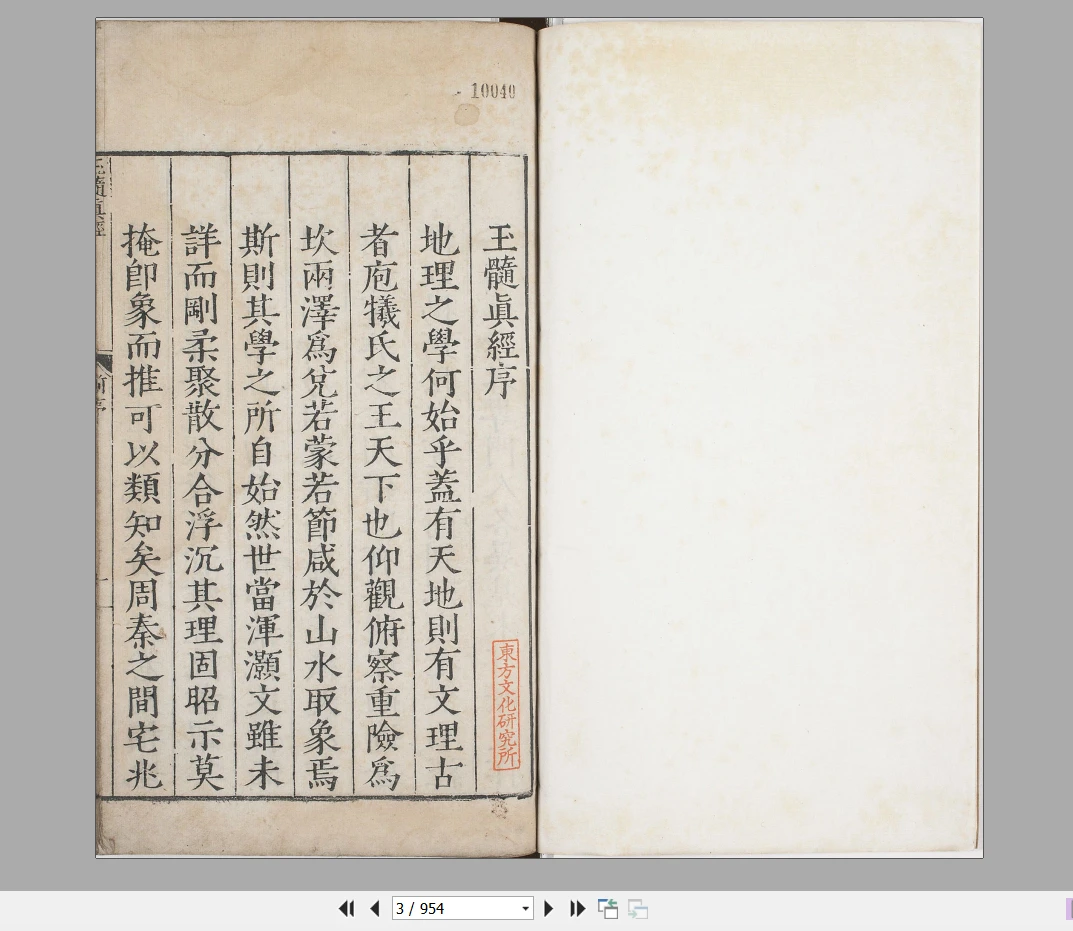 10040
玉髓眞經序
地理之學何始乎蓋有天地則有文理古
者庖犧氏之王天下也仰觀俯察重險爲
坎兩澤爲兌若蒙若節咸於山水取象焉
斯則其學之所自始然世當渾灝文雖未
詳而剛柔聚散分合浮沉其理固昭示莫
掩卽象而推可以類知矣周秦之間宅兆
東方文化研究所
玉髓眞經
3 / 954